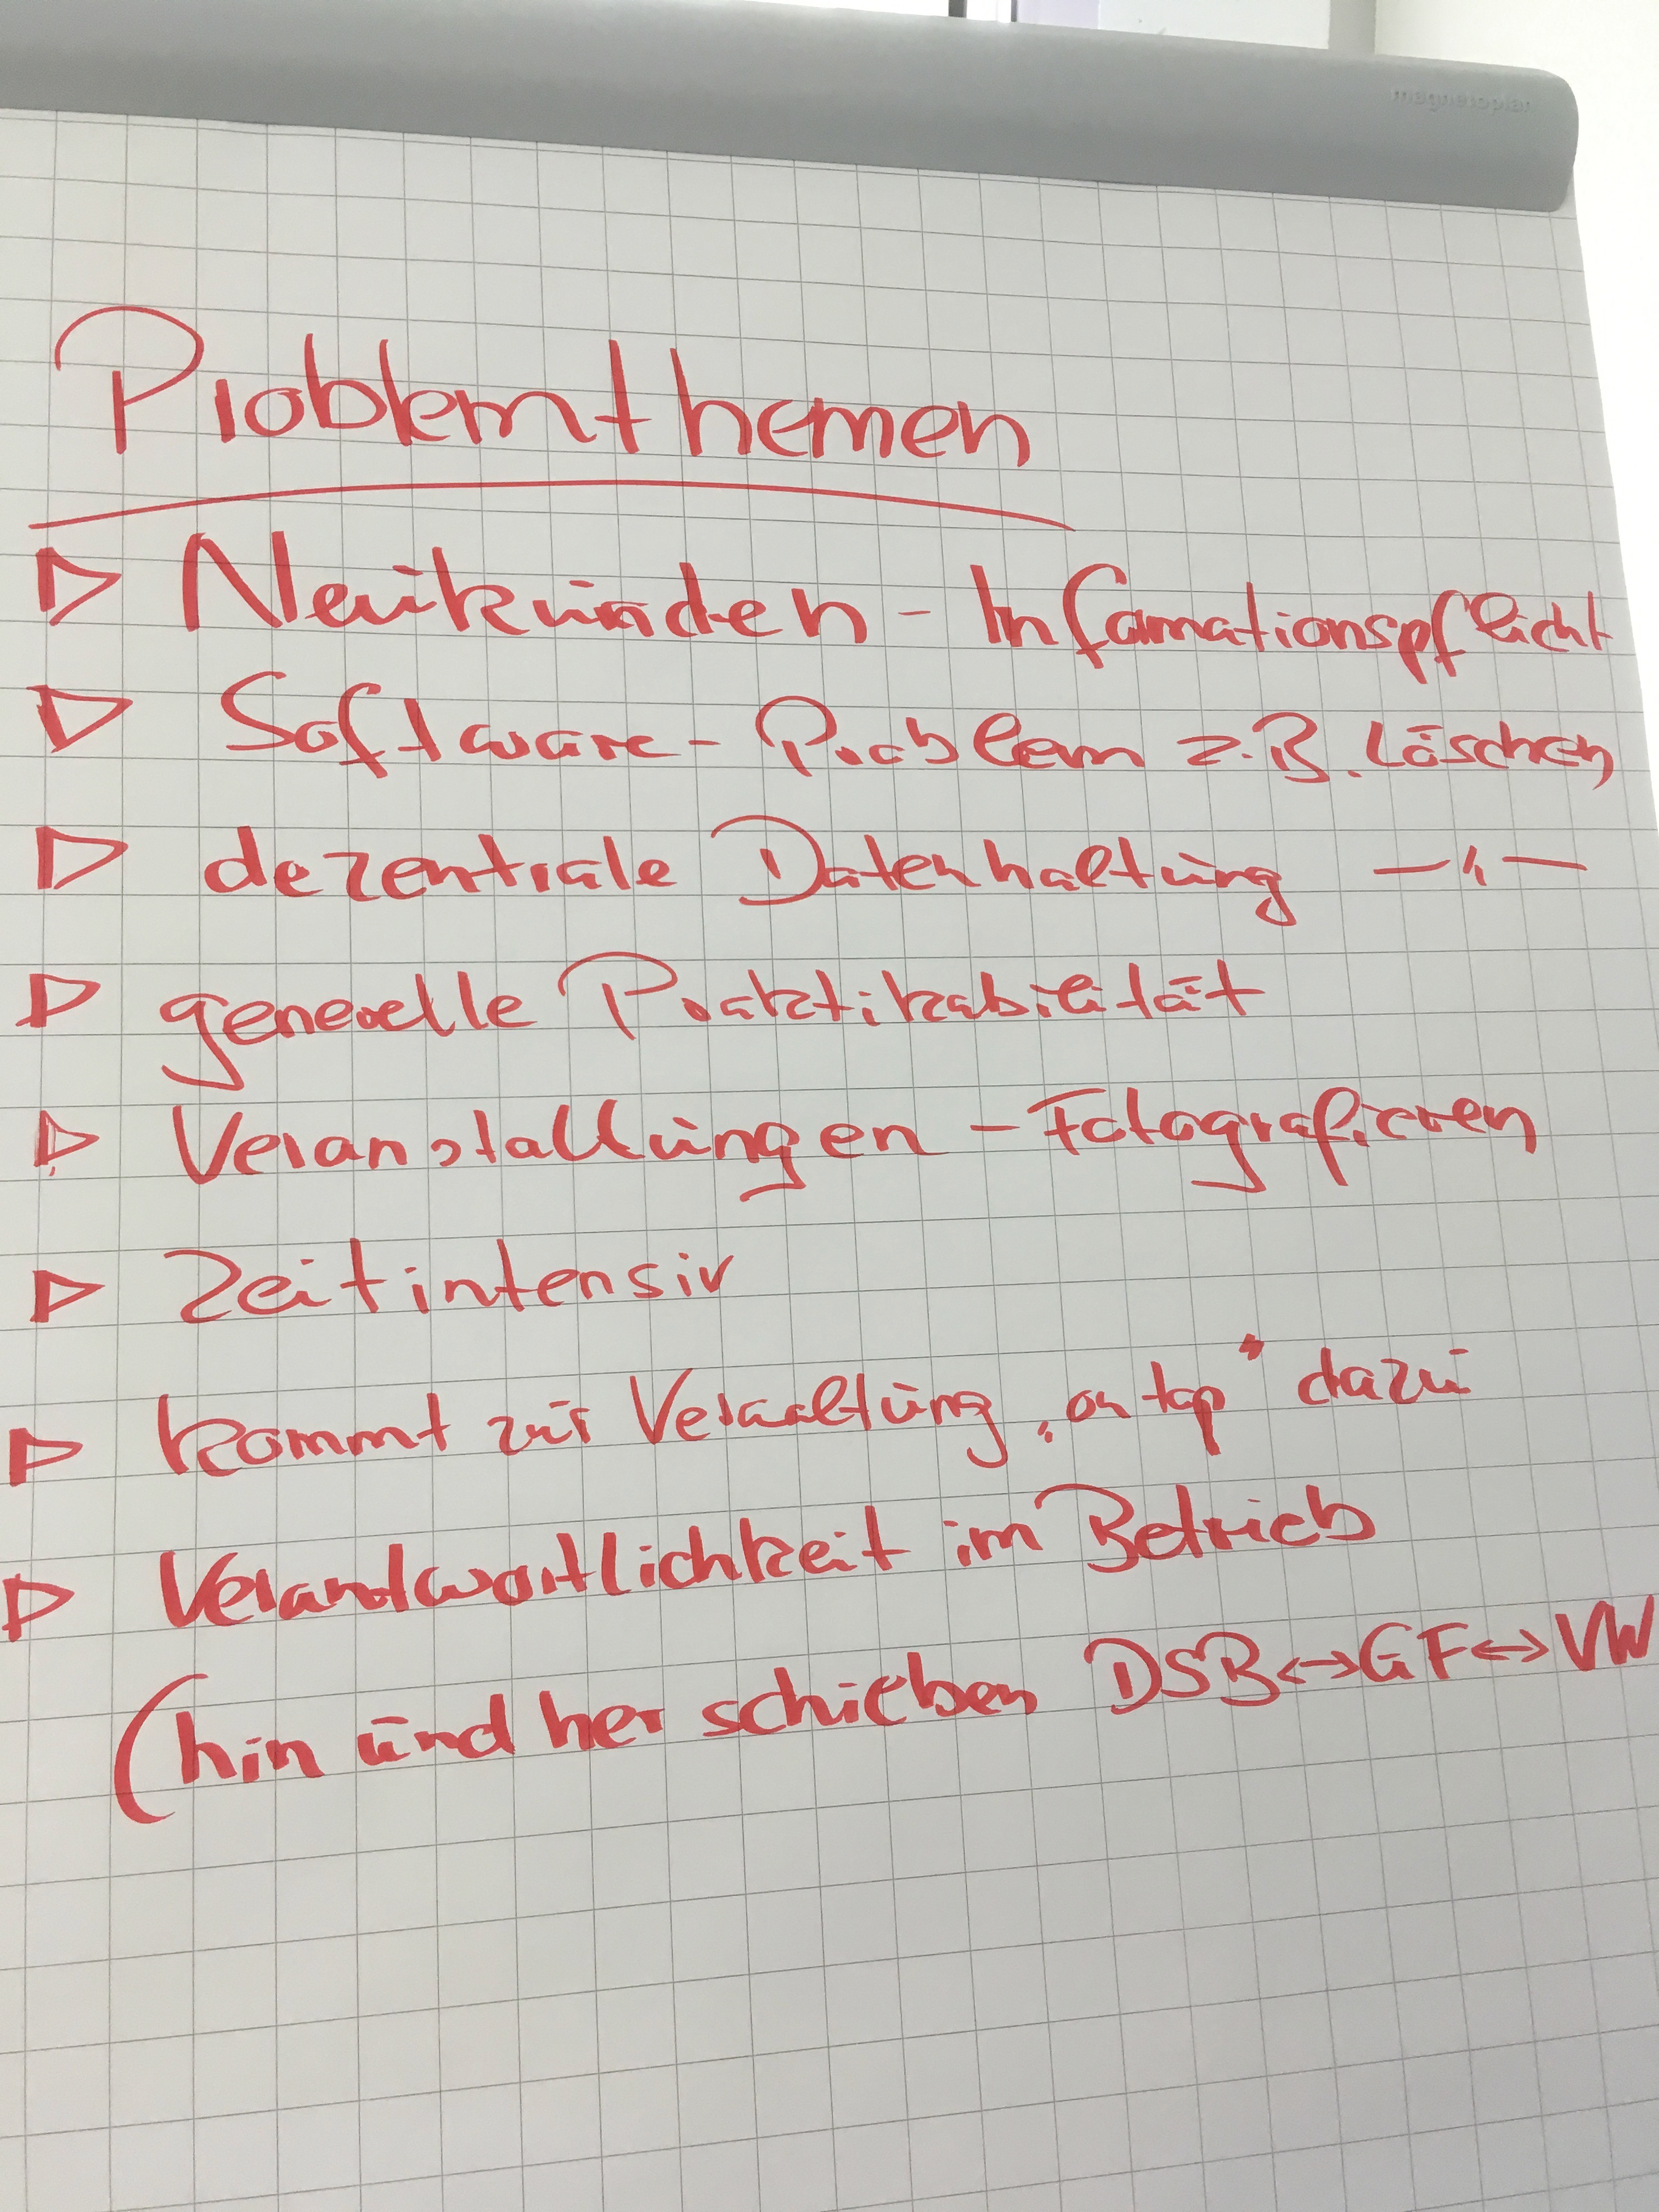 magnetoplan
Problemthemen
▷ Neukunden - Informationspflicht
▷ Software - Problem z.B. Löschen
▷ dezentrale Datenhaltung —"—
▷ generelle Praktikabilität
▷ Veranstaltungen - Fotografieren
▷ Zeitintensiv
▷ kommt zur Verwaltung „on top" dazu
▷ Verantwortlichkeit im Betrieb
(hin und her schieben DSB↔GF↔VW